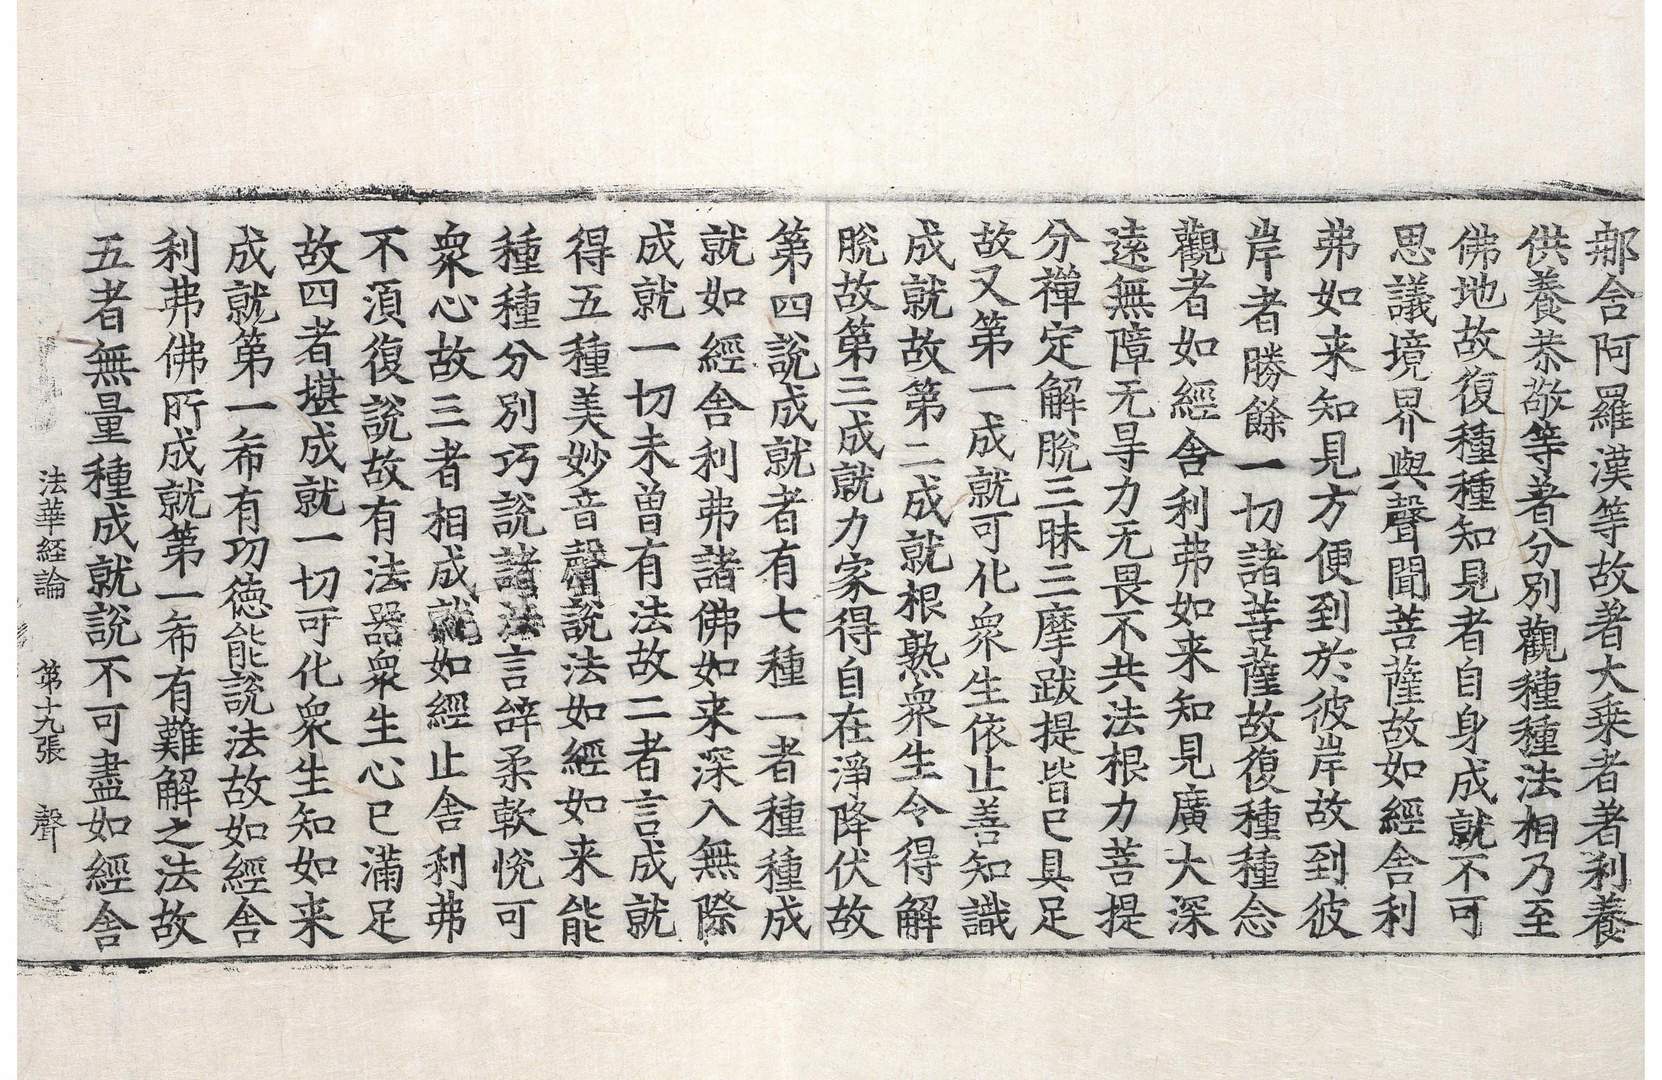 那含阿羅漢等故著大乗者著利養
供養恭敬等著分別觀種種法相乃至
佛地故復種種知見者自身成就不可
思議境界與聲聞菩薩故如經舎利
弗如来知見方便到於彼岸故到彼
岸者勝餘一切諸菩薩故復種種念
觀者如經舎利弗如来知見廣大深
遠無障无㝵力无畏不共法根力菩提
分禪定解脫三昧三摩跋提皆已具足
故又第一成就可化衆生依止善知識
成就故第二成就根熟衆生令得解
脫故第三成就力家得自在淨降伏故
第四說成就者有七種一者種種成
就如經舎利弗諸佛如来深入無際
成就一切未曽有法故二者言成就
得五種美妙音聲說法如經如来能
種種分別巧說諸法言辝柔軟悅可
衆心故三者相成就如經止舎利弗
不湏復說故有法器衆生心已滿足
故四者堪成就一切可化衆生知如来
成就第一希有功德能說法故如經舎
利弗佛所成就第一希有難解之法故
五者無量種成就說不可盡如經舎
法華経論 第十九張 聲